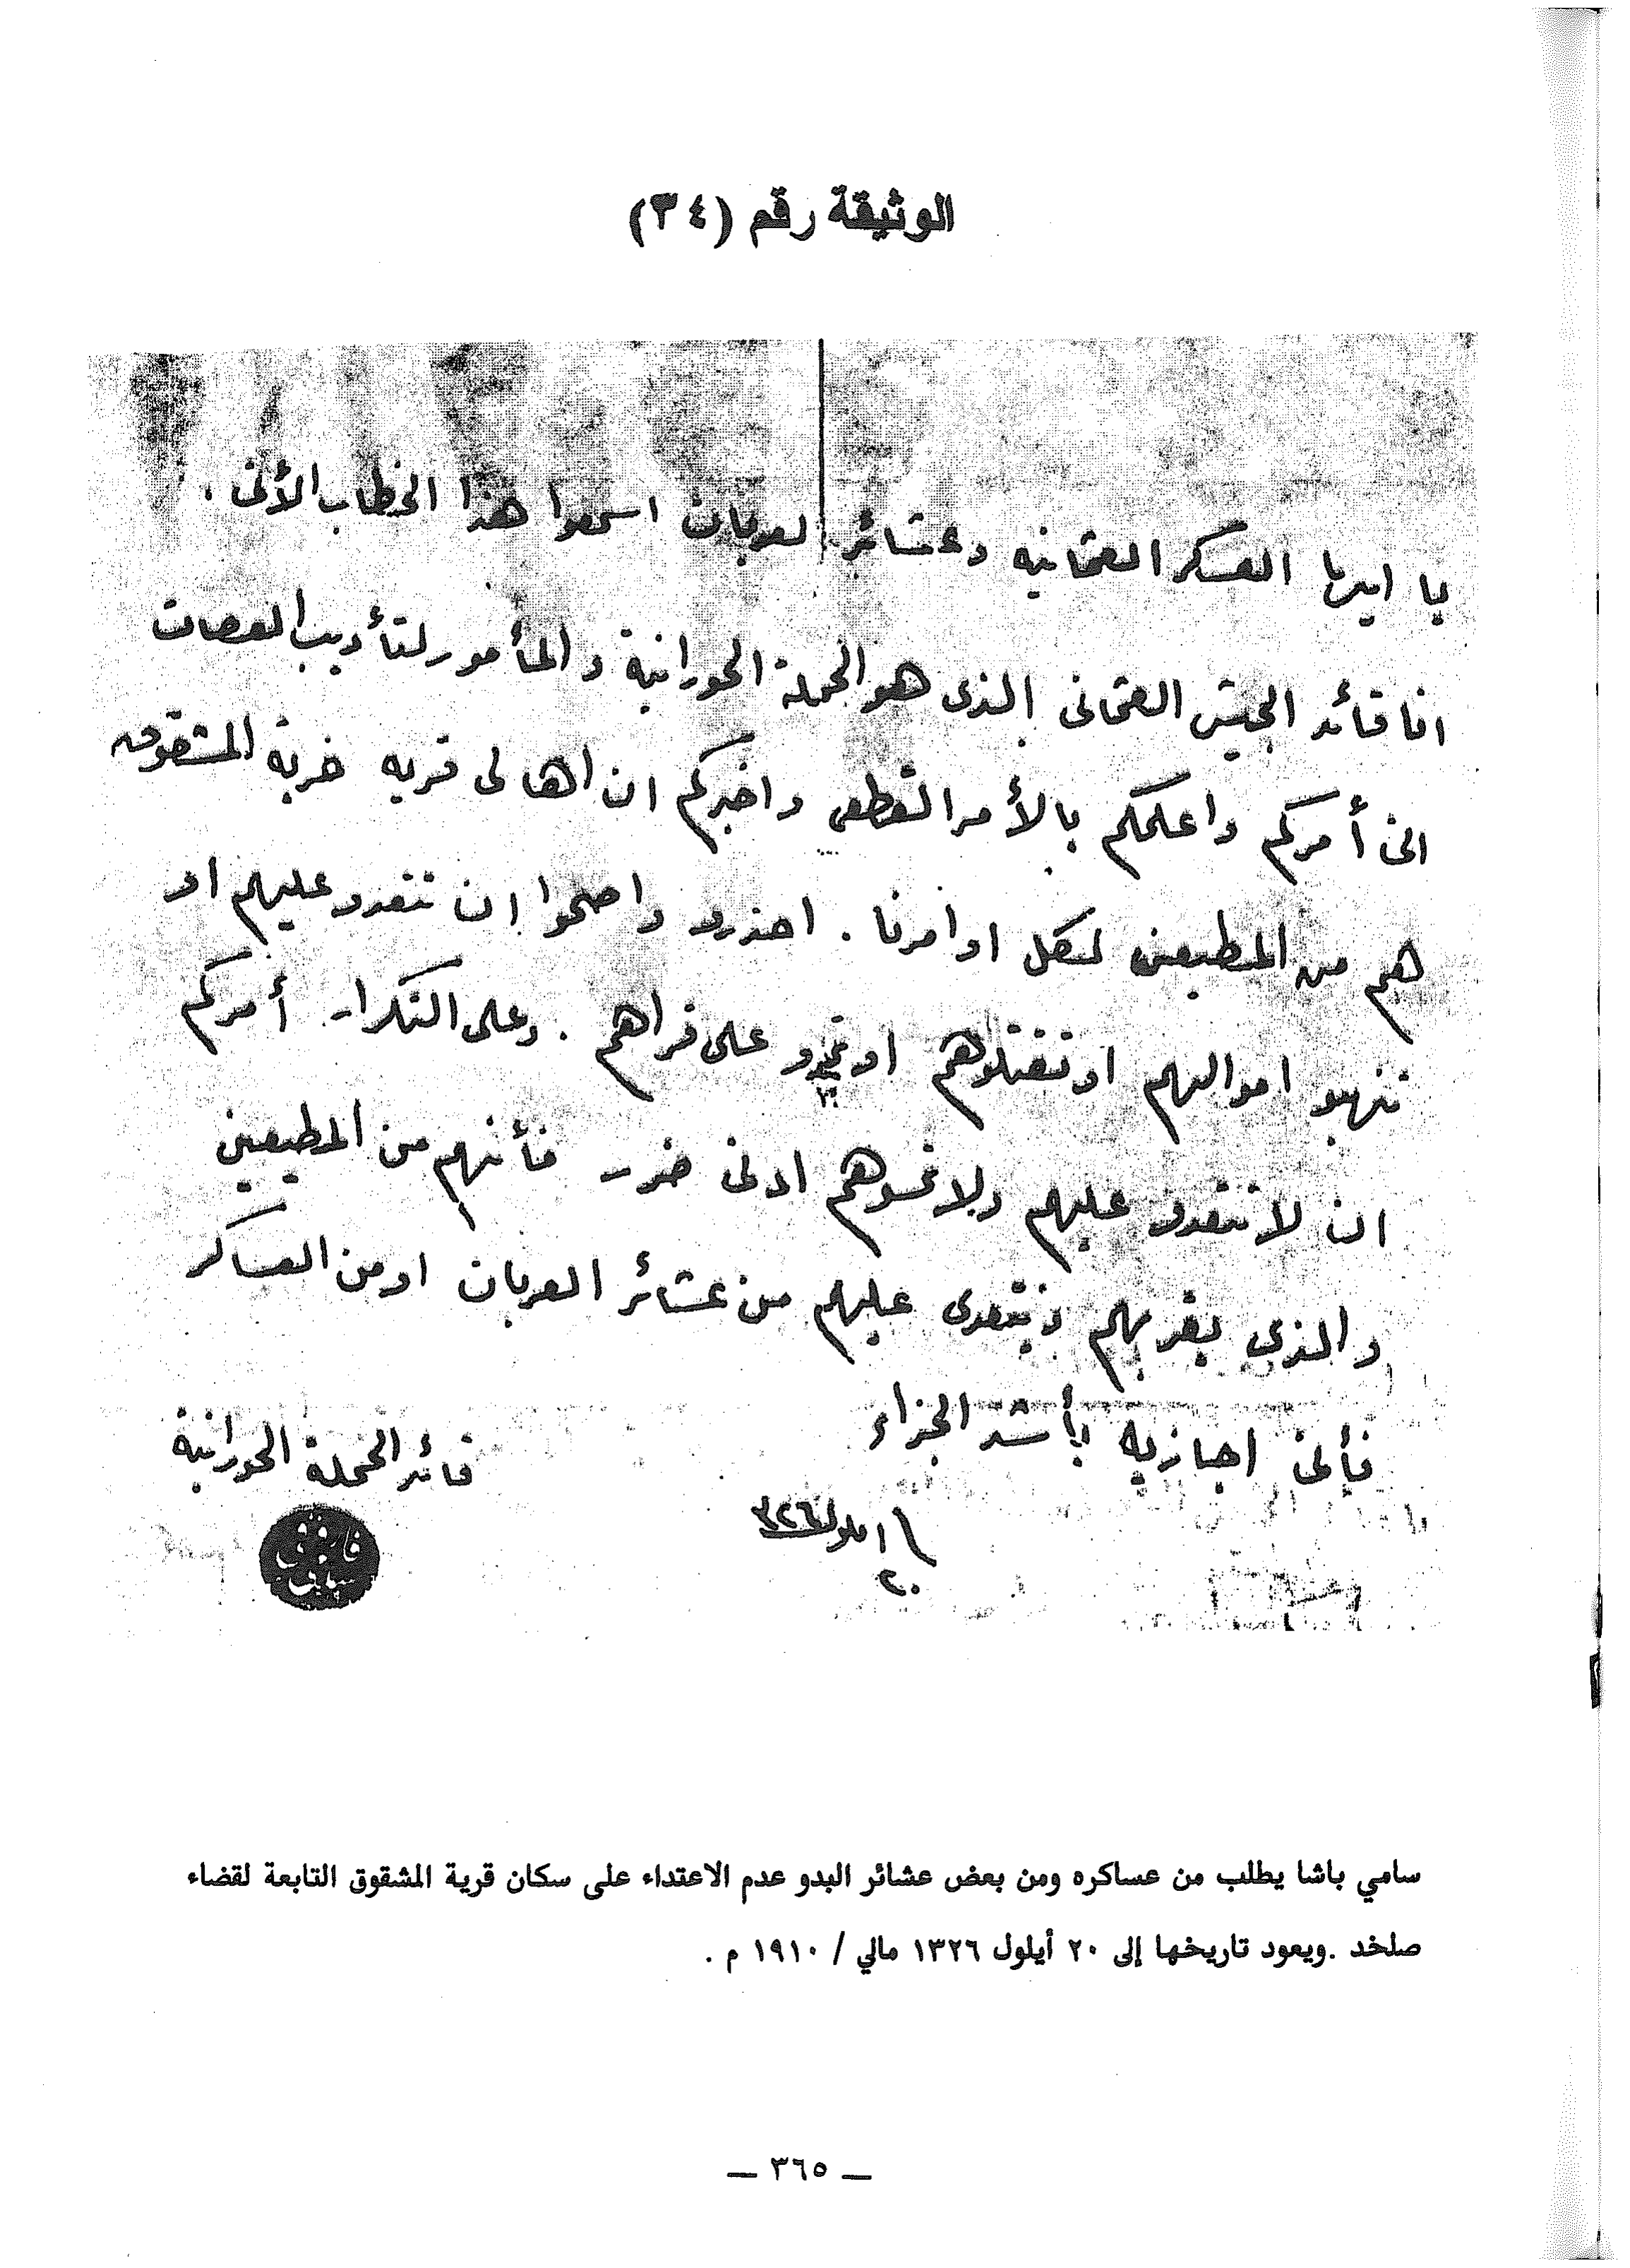 الوثيقة رقم (٣٤)
يا ايها العسكر العثمانيه وعشائر لعربان اسمعوا هذا الخطاب الأتى .
انا قائد الجيش العثمانى الذى هو الحملة الحورانية والمأمور لتأديب العصات
انى أمركم واعلمكم بالأمر القطعى واخبركم ان اهالى قريه خربة المشقوق
هم من المطيعين لكل اوامرنا . احذرو واصحوا ان تتعدو عليهم او
تنهبو اموالهم او تقتلوهم او على قراهم . وعلى التكرار أمركم
ان لا تتعدو عليهم ولا تمسوهم ادنى ضرر فأنهم من المطيعين
والذى يقربهم ويتعدى عليهم من عشائر العربان او من العساكر
فأنى اجازيه بأشد الجزاء
قائد الحملة الحورانية
٢٠ ايلول ٣٢٦
سامي باشا يطلب من عساكره ومن بعض عشائر البدو عدم الاعتداء على سكان قرية المشقوق التابعة لقضاء
صلخد .ويعود تاريخها إلى ٢٠ أيلول ١٣٢٦ مالي / ١٩١٠ م .
— ٣٦٥ —